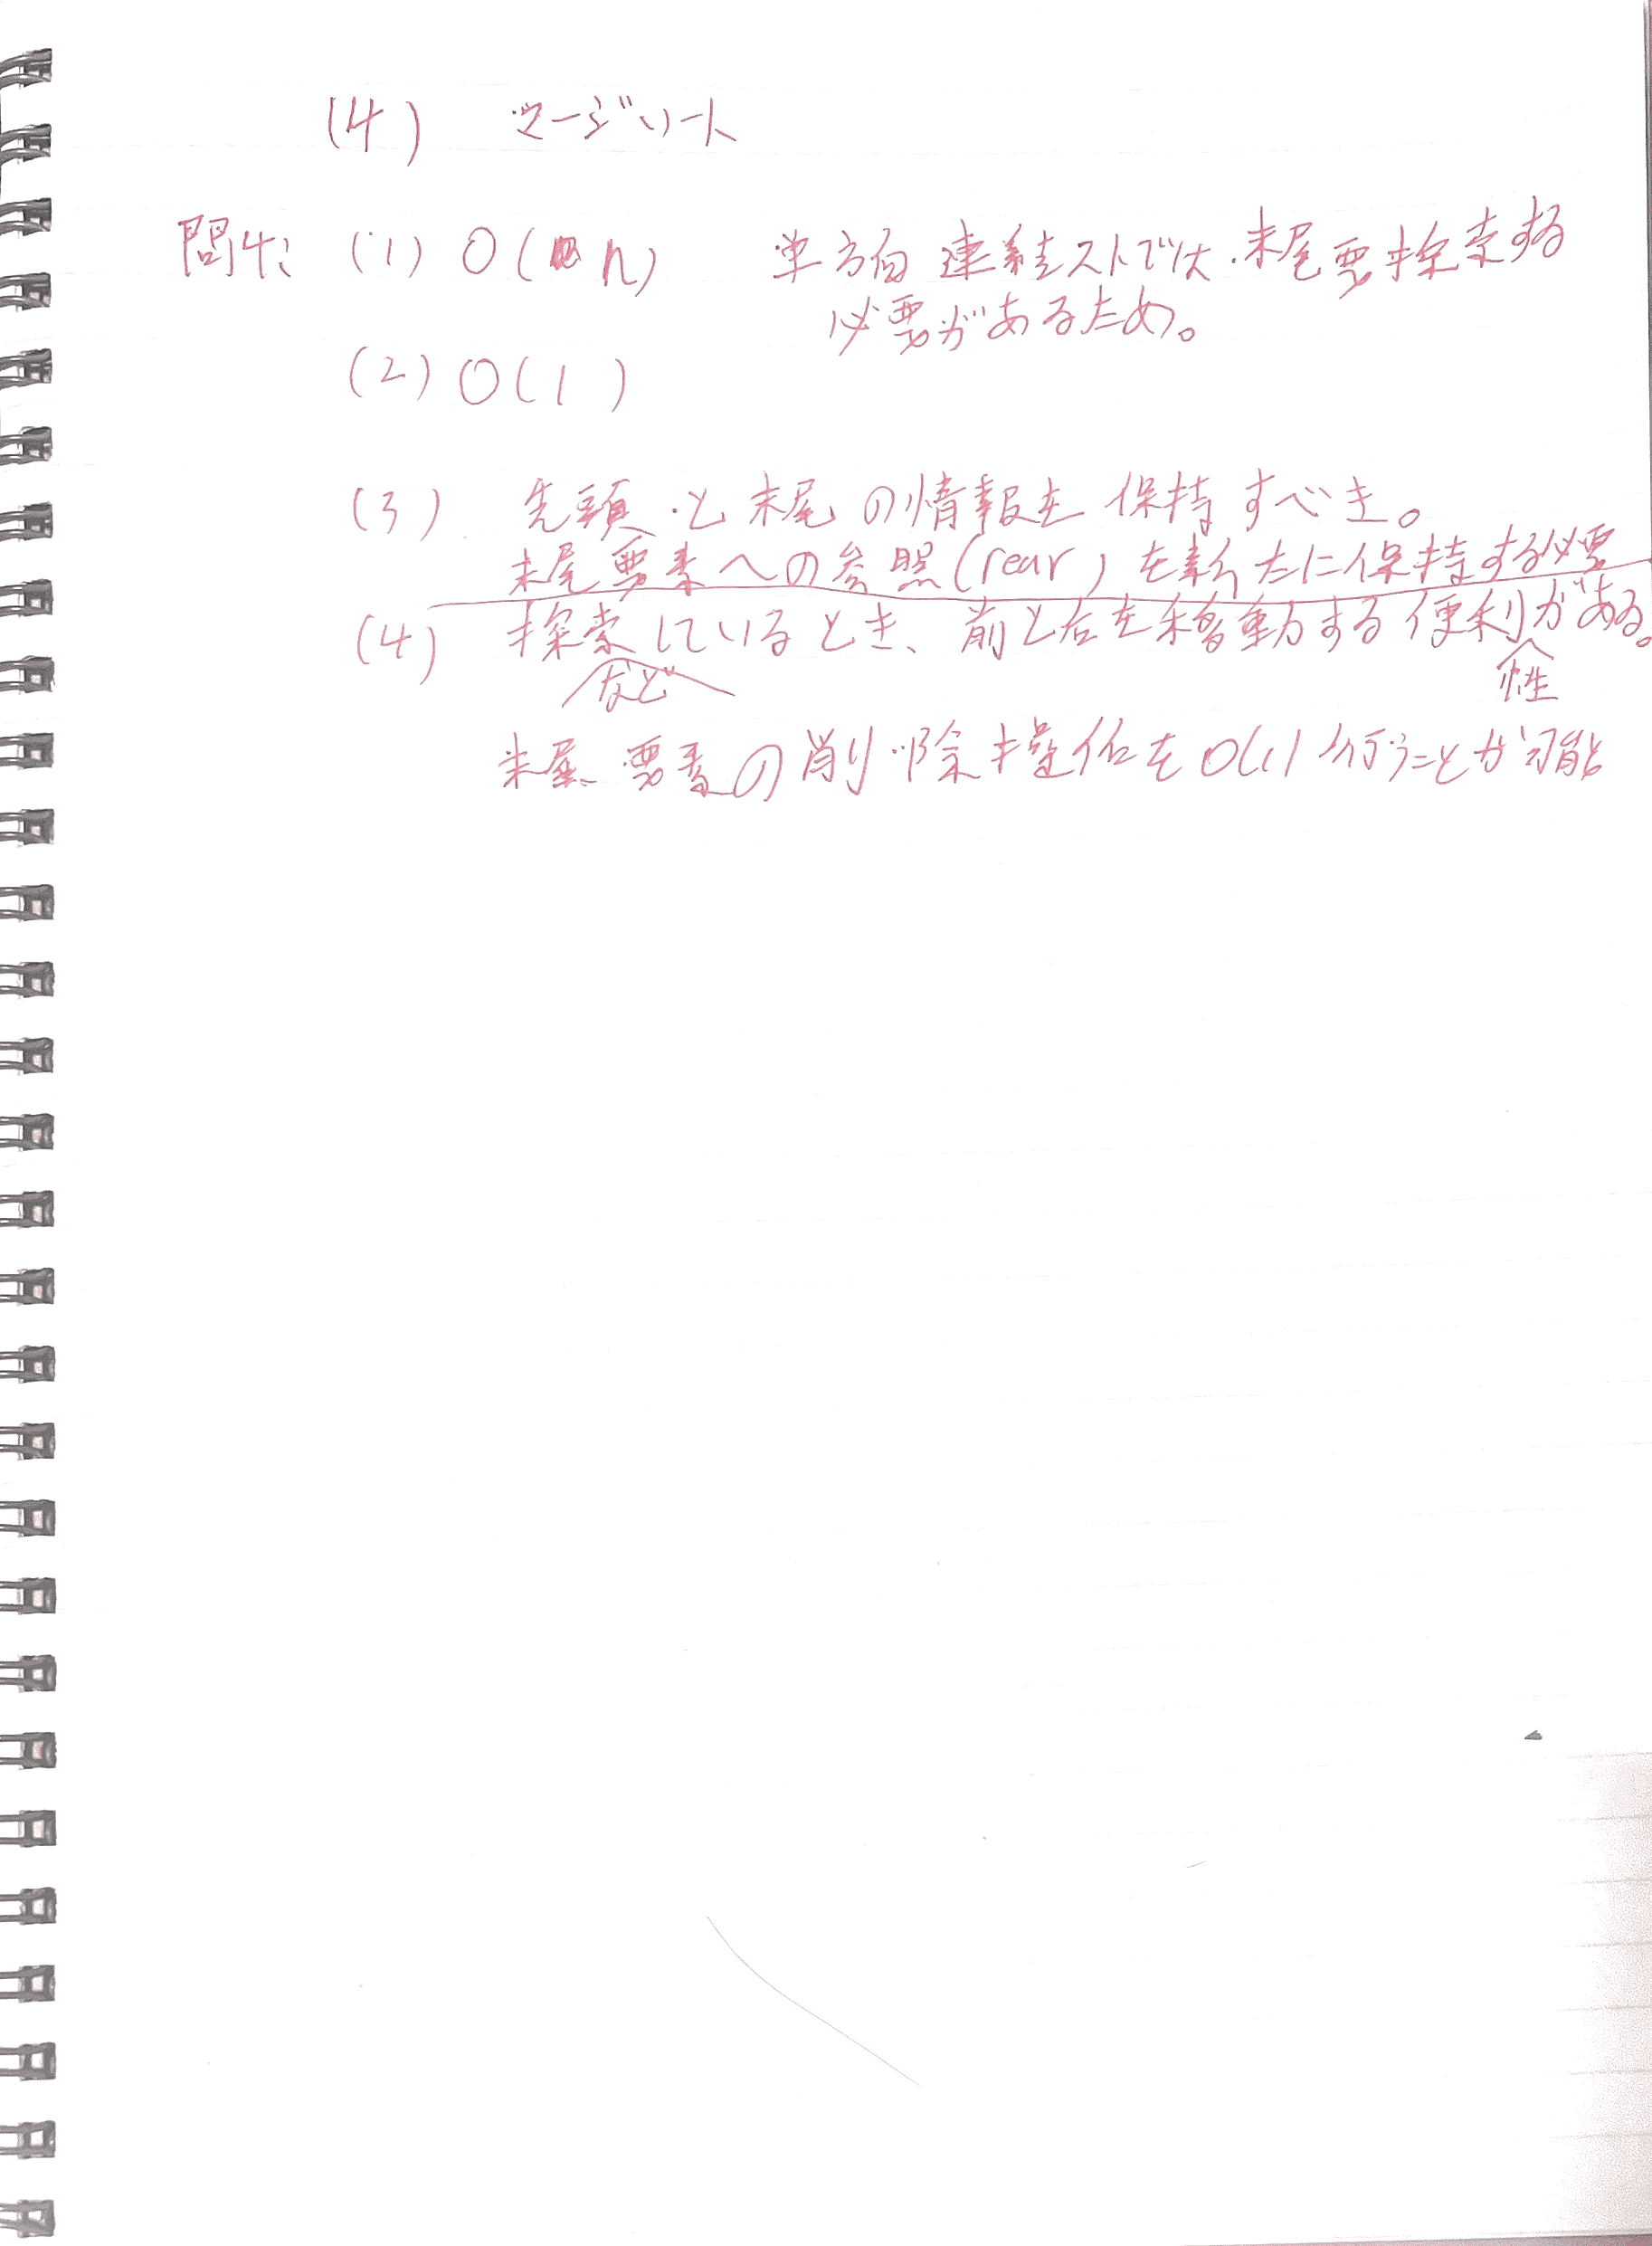 (4) マージソート
問4: (1) O(n) 単方向連結ストでは、末尾要探索する
必要があるため。
(2) O(1)
(3) 先頭と末尾の情報を保持すべき。
末尾要素への参照(rear)を新たに保持する必要
(4) 探索しているとき、前と右を移動する便利がある。
など 性
末尾要素の削除操作をO(1)行うことが可能